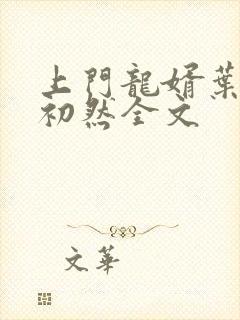 上門龍婿葉
初然全文
文華